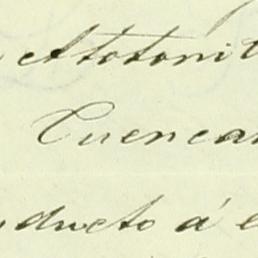 Atotonil
Cuencam
ducto á e